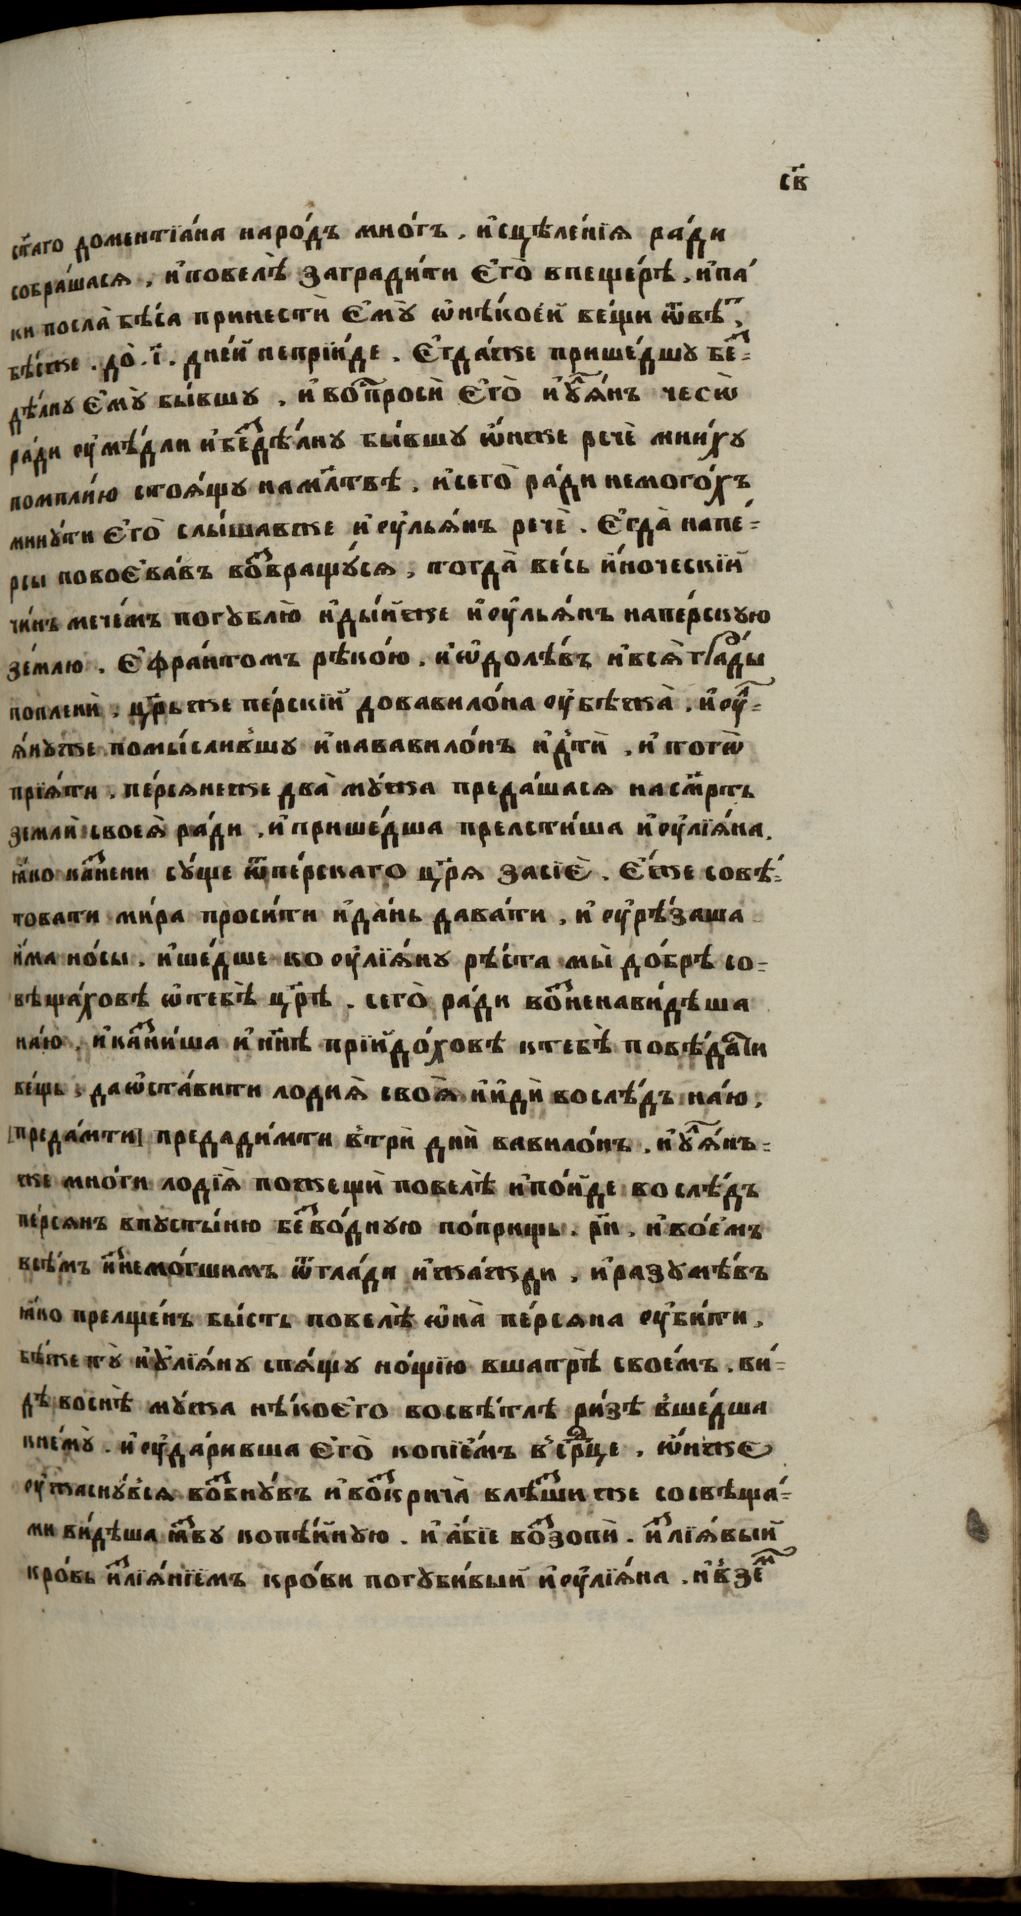 с҃в
ст҃аго доментїа́на наро́дъ мно́гъ, и҆сцѣле́нїѧ ра́ди
собра́шасѧ, и҆повелѣ̀ загради́ти є҆го̀ впеще́рѣ, и҆па́
ки посла̀ бѣ́са принестѝ є҆мꙋ̀ ѡ҆нѣ́коей ве́щи ѿвѣ́т.
бѣ́сже. до̀.і҃. дне́й непрїи́де. є҆гда́же прише́дшꙋ без̾=
дѣ́лнꙋ є҆мꙋ̀ бы́вшꙋ, и҆вопросѝ є҆го̀ и҆ꙋлїѧ́нъ чесѡ̀
ра́ди ᲂу҆ме́дли и҆бездѣ́лнꙋ бы́вшꙋ ѡ҆́нже речѐ мни́хꙋ
помпли́ю стоѧ́щꙋ намл҃твѣ, и҆сего̀ ра́ди немого́хъ
минꙋ́ти є҆го̀ слы́шавже и҆ᲂу҆льѧ́нъ речѐ. є҆гда̀ напе́=
рсы повоєва́въ возвращꙋ́сѧ, тогда̀ ве́сь и҆́ноческїй
чи́нъ мече́мъ погꙋблю̀ и҆ды́йже и҆ᲂу҆льѧ́нъ напе́рскꙋю
зе́млю. є҆фра́нтомъ рѣко́ю. и҆ѡ҆долѣ́въ и҆всѧ̀ гра́ды
попленѝ, цр҃ьже пе́рскїй довавило́на ᲂу҆бѣжа̀. и҆ᲂу҆лї=
ѧ́нꙋже помы́слившꙋ и҆нававило́нъ и҆дтѝ, и҆тогѡ̀
прїѧ́ти. пе́рсѧнеже два̀ мꙋ́жа преда́шасѧ насме́рть
землѝ своеѧ̀ ра́ди, и҆прише́дша прелсти́ша и҆ᲂу҆лїѧ́на.
ꙗ҆́ко ка́зни сꙋ́ще ѿпе́рскаго цр҃ѧ̀ засїѐ. є҆́же совѣ́=
товати ми́ра проси́ти и҆да́нь дава́ти, и҆ᲂу҆рѣ́заша
и҆́ма но́сы. и҆ше́дше ко ᲂу҆лїѧ́нꙋ рѣ́ста мы̀ до́брѣ со=
вѣща́ховѣ ѡ҆тебѣ̀ цр҃ѣ̀. сего̀ ра́ди возненави́дѣша
на́ю. и҆казни́ша и҆нн҃ѣ прїйдо́ховѣ ктебѣ̀ повѣ́дати
ве́щь, даѡ҆ста́вити лодиѧ̀ своѧ̀ и҆и҆дѝ во слѣ́дъ на́ю,
[преда́мти] предади́мти в҆трѝ днѝ вавило́нъ. и҆ꙋлїѧ́нъ=
же мно́ги лодїѧ̀ пожещѝ повелѣ̀ и҆по́йде во слѣ́дъ
пе́рсѧнъ впꙋсты́ню безво́днꙋю по́прищь. рн҃. и҆во́емъ
всѣ́мъ и҆знемо́гшимъ ѿгла́ди и҆жа́жди, и҆разꙋмѣ́въ
ꙗ҆́ко прелще́нъ бы́сть повелѣ̀ ѡ҆на̀ пе́рсѧна ᲂу҆би́ти,
бѣ́жетꙋ̀ и҆ꙋлїѧ́нꙋ спѧ́щꙋ но́щїю вшатрѣ̀ свое́мъ. ви́=
дѣ воснѣ̀ мꙋ́жа нѣ́коего восвѣ́тлѣ ри́зѣ в҆ше́дша
кнемꙋ̀. и҆ᲂу҆да́ривша є҆го̀ копїе́мъ в҆се́рдце. ѡ҆́нже
ᲂу҆жаснꙋ́всѧ возбнꙋ́въ и҆возкрича̀ сосвѣща́=
ми ви́дѣша ꙗ҆́звꙋ копѣ́йнꙋю. и҆а҆́бїе возопѝ. и҆злїѧ́вый
кро́вь и҆злїѧ́нїемъ кро́ви погꙋби́вый и҆ᲂу҆лїѧ́на. и҆в҆зе́м